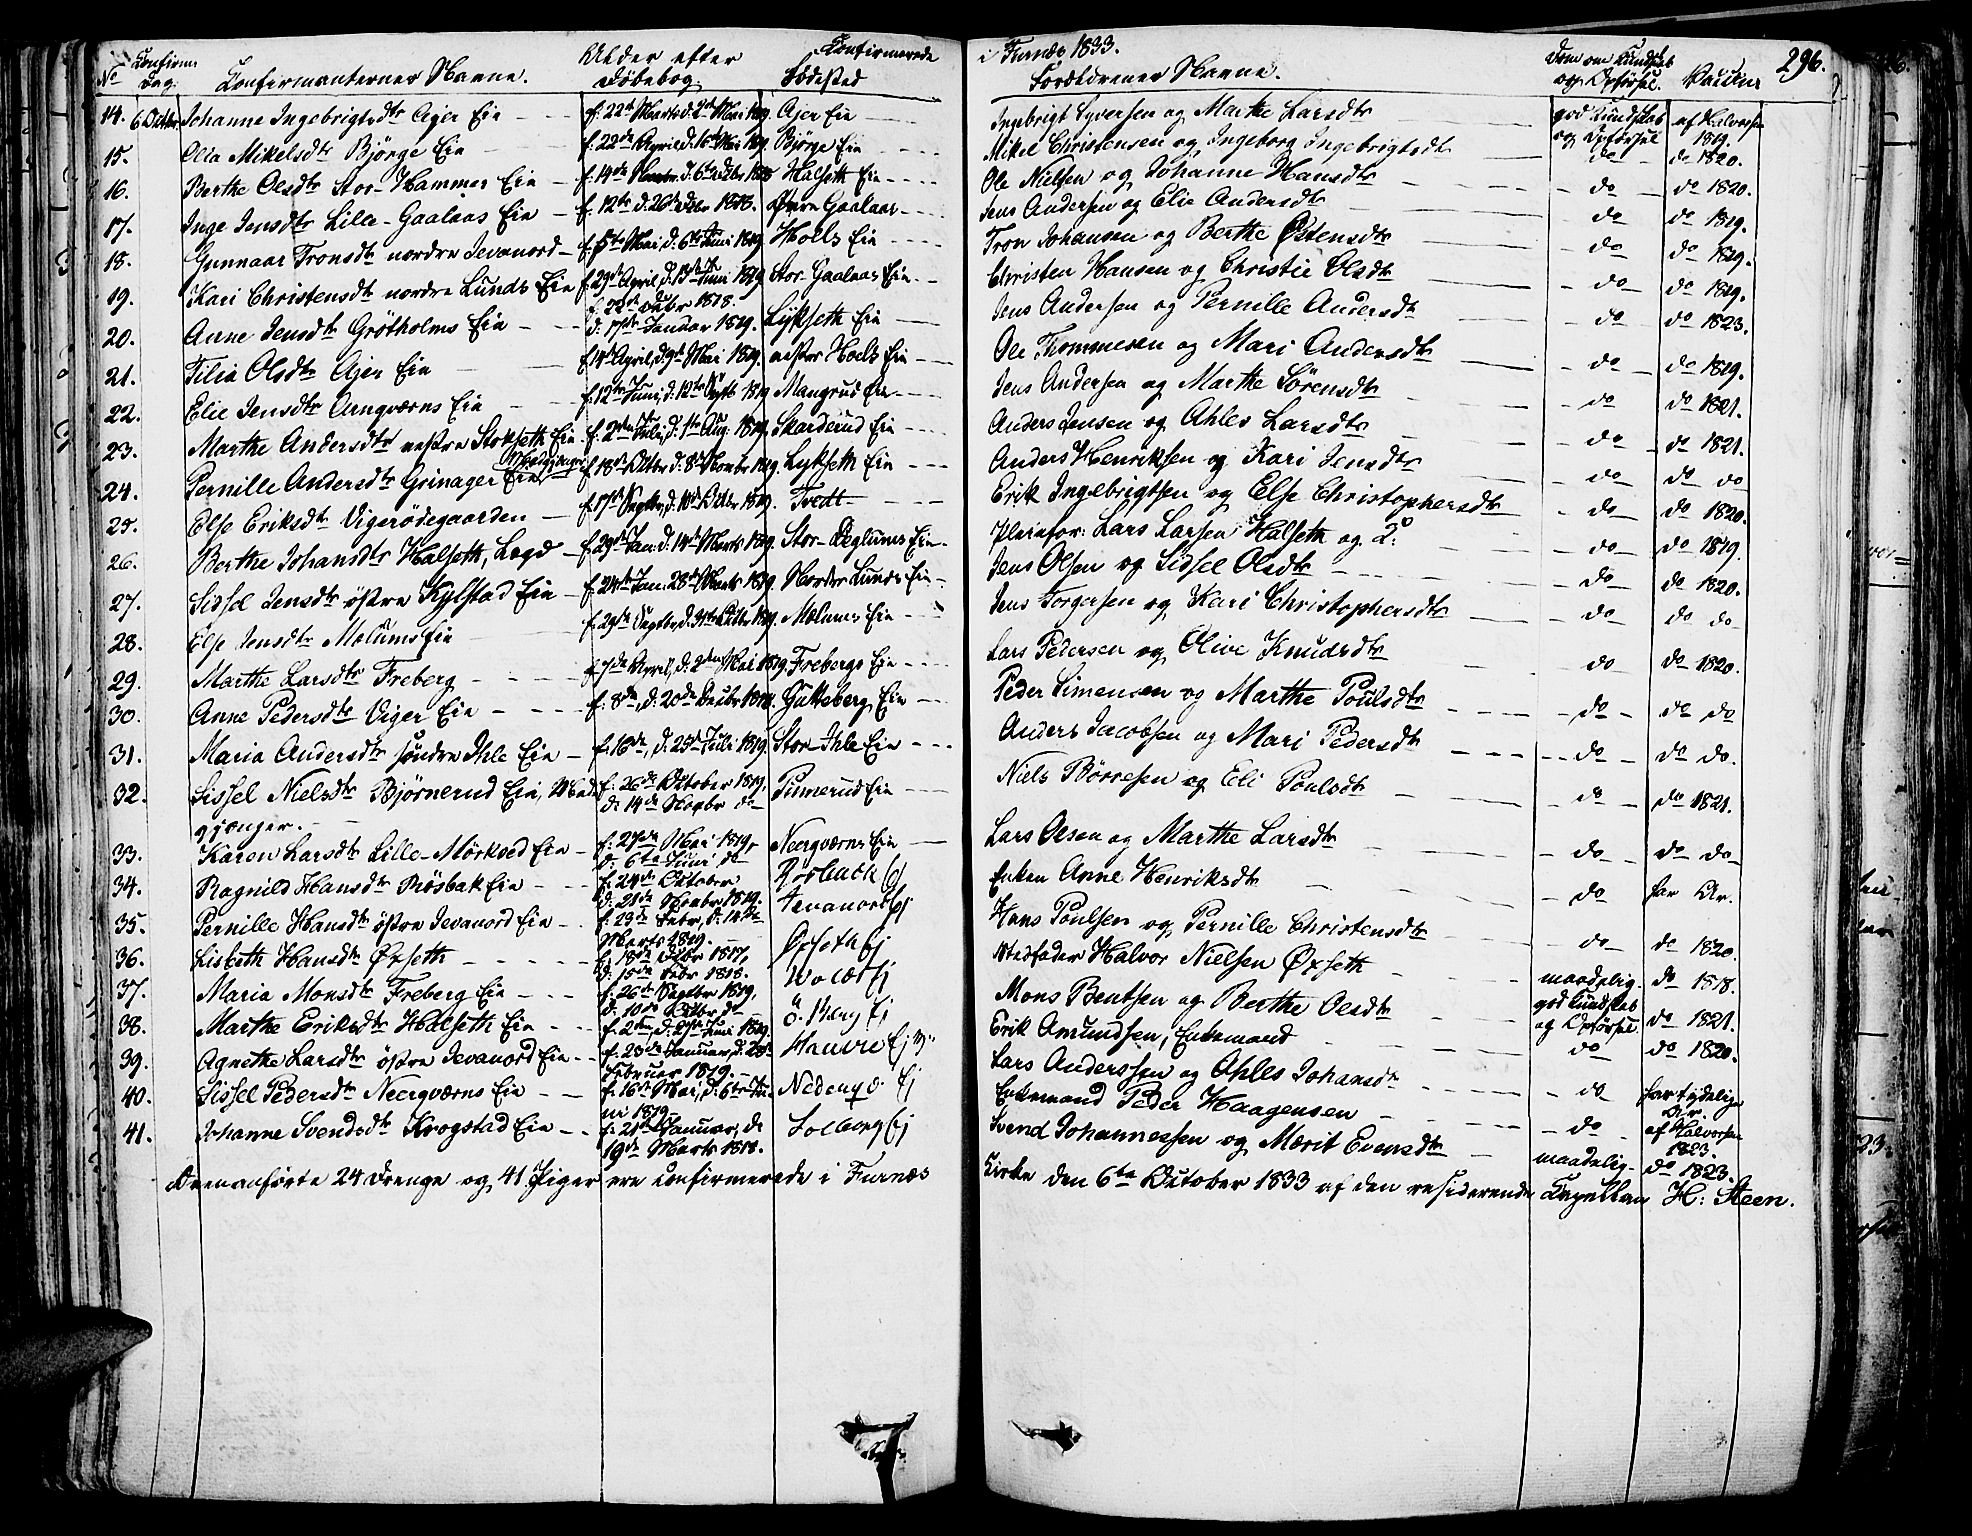 Confirmerede i Furnæs 1833. 296.
No Confirm. Dag. Confirmanternes Navne. Alder efter Döbebog. Födested Forældrenes Navne. Dom om Kundskab og Opförsel. Vaccine
14. 6 Octbr Johanne Ingebrigtsdtr Ajer Eie f. 22de Marts d. 2den Mai 1819 Ajer Eie Ingebrigt Syversen og Marthe Larsdtr god Kundskab og Opförsel af Halvorsen 1819.
15. Olia Mikelsdtr Björge Eie f. 22de April d. 16de Mai 1819 Björge Eie Mikel Christensen og Ingeborg Ingebrigtsdtr do do 1820.
16. Berthe Olsdtr Stor-Hammer Eie f. 14de d. 6te Halseth Eie Ole Nielsen og Johanne Hansdtr do do 1820.
17. Inge Jensdtr Lille-Gaalaas Eie f. 12te d. 26de 1818. Övre Gaalaas Jens Andersen og Elie Andersdtr do do 1819.
18. Gunnaar Tronsdtr nordre Jevanord f. 5te Mai, d. 6te Juni 1819 Hoels Eie Tron Johansen og Berthe Östensdtr do do 1819.
19. Kari Christensdtr nordre Lunds Eie f. 29de April, d. 13de Juni 1819 Stor-Gaalaas Eie Christen Hansen og Christie Olsdtr do do 1819.
20. Anne Jensdtr Grötholms Eie f. 22de Octbr 1818. d. 17de Januar 1819. Lykseth Eie Jens Andersen og Pernille Andersdtr do do 1823.
21. Tilia Olsdtr Ajer Eie f. April, d. 9de Mai 1819. vestre Hoels Eie Ole Thommesen og Mari Andersdtr do do 1819.
22. Elie Jensdtr Arnqværns Eie f. 12te Juni, d. 12te Septb 1819 Mangrud Eie Jens Andersen og Marthe Sörensdtr do do 1821.
23. Marthe Andersdtr vestre Stokseth Eie f. 2den Juli, d. 1ste Aug. 1819. Skarderud Eie Anders Jensen og Ahles Larsdtr do do 1821.
24. Pernille Andersdtr Grinager Eie f. 18de Octbr d. 8de Novbr 1819. Lykseth Eie Anders Henriksen og Kari Jensdtr do do do
25. Else Eriksdtr Vigerödegaarden f. 17de Septbr, d. Octbr 1819. Tvedt Erik Ingebrigtsen og Else Christophersdtr do do 1820.
26. Berthe Johansdtr Halseth, Lægd f. 29de Jan: d. 14de Marts 1819. Stor-Deglums Eie Pleiefor: Lars Larsen Halseth og do do 1819.
27. Sidsel Jensdtr östre Kylstad Eie f. 24de Jan. 28de Marts 1819 Nordre Lunds Eie Jens Olsen og Sidsel Olsdtr do do 1820.
28. Else Jensdtr Molums Eie f. 29de Septbr, d. Octbr 1819. Molumes Eie Jens Torgersen og Kari Christophersdtr do do do
29. Marthe Larsdtr Freberg f. 7de April, d. 2den Mai 1819 Frebergs Eie Lars Pedersen og Olive Knudsdtr do do 1820.
30. Anne Pedersdtr Viger Eie f. 8de, d. 20de Gutteberg Eie Peder Simensen og Marthe Poulsdtr do do do
31. Maria Andersdtr söndre Ihle Eie f. 16de, d. 25de Juli 1819 Stor-Ihle Eie Anders Jacobsen og Mari Pedersdtr do do do.
32. Sissel Nielsdtr Björnerud Eie, f. 26de October 1819, d: 14de Novbr do Pinnerud Eie Niels Börresen og Eli Poulsdtr do do 1821.
33. Karen Larsdtr Lille-Mörkved Eie f. 27de Mai 1819, d: 6te Juni do Neerqværns Eie Lars Olsen og Marthe Larsdtr do do do
34. Ragnild Hansdtr Rösbak Eie f. 24de October d. 21de Novbr 1819. Rösback Ej Enken Anne Henriksdtr do har Ar.
35. Pernille Hansdtr östre Jevanord Eie f. 23de Febr. d. 14de Marts 1819. Jevanord Ej Hans Poulsen og Pernille Christensdtr do do 1820.
36. Lisbeth Hansdtr Öxseth f. 18de 1817, d. 15de Febr 1818. Öxseth Ej Stedfader Halvor Nielsen Öxseth maadelig. do 1818.
37. Maria Monsdtr Freberg Eie f. 26de Septbr 1819, d: 10de Octbr do Ej Mons Bentsen og Berthe Olsdtr god Kundskab og Opförsel do 1821.
38. Marthe Eriksdtr Halseth Eie f. 2den, d. 27de Juni 1819 ö. Berg Ej Erik Amundsen, Enkemand do do 1820.
39. Agnethe Larsdtr östre Jevanord Eie f. 23de Januar, d. 28de Februar 1819. Ej Lars Anderssen og Ahles Johansdtr do har tydelige Ar.
40. Sissel Pedersdtr Neerqværns Eie f. 16de Mai, d. 6te Juni 1819. Ej Enkemand Peder Haagensen do af Halvorsen 1823.
41. Johanne Svendsdtr Krogstad Eie f. 21de Januar, d: 19de Marts 1818. Solberg Ej Svend Johannessen og Marit Evensdtr maadelig. do 1823.
Ovenanförte 24 Drenge og 41 Piger ere confirmerede i Furnæs Kirke den 6te October 1833 af den residerende Capellan H: Steen.